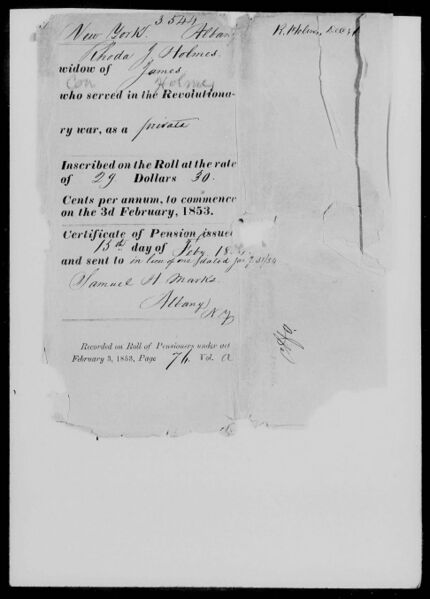 3544
New York. Alban
R. Holmes, Dec
Rhoda J. Holmes
widow of James
Con Holmes
who served in the Revolutiona-
ry war, as a private
Inscribed on the Roll at the rate
of 29 Dollars 30
Cents per annum, to commence
on the 3d February, 1853.
Certificate of Pension issued
15th day of Feby 18
and sent to in lieu of one dated
Samuel H. Marks
Albany
N.Y.
Recorded on Roll of Pensioners under act
February 3, 1853, Page 76 Vol. A